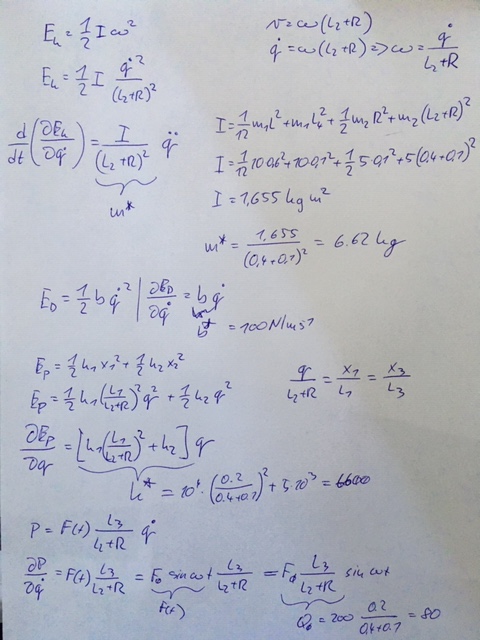 E_k = 1/2 I ω²
v = ω(L₂+R)
E_k = 1/2 I q̇²/(L₂+R)²
q̇ = ω(L₂+R) => ω = q̇/(L₂+R)
d/dt (∂E_k/∂q̇) = I/(L₂+R)² q̈
m*
I = 1/12 m₁L² + m₁L₄² + 1/2 m₂R² + m₂(L₂+R)²
I = 1/12 10·0.6² + 10·0.1² + 1/2 5·0.1² + 5(0.4+0.1)²
I = 1,655 kg m²
m* = 1,655/(0,4+0,1)² = 6.62 kg
E_D = 1/2 b q̇² | ∂E_D/∂q̇ = b q̇
b* = 100 N/ms⁻¹
E_p = 1/2 k₁x₁² + 1/2 k₂x₂²
E_p = 1/2 k₁(L₁/(L₂+R))² q² + 1/2 k₂ q²
q/(L₂+R) = x₁/L₁ = x₃/L₃
∂E_p/∂q = [k₁(L₁/(L₂+R))² + k₂] q
k* = 10⁴·(0.2/(0.4+0.1))² + 5·10³ = 6600
P = F(t) L₃/(L₂+R) q̇
∂P/∂q̇ = F(t) L₃/(L₂+R) = F₀ sin ωt L₃/(L₂+R) = F₀ L₃/(L₂+R) sin ωt
F(t)
Q₀ = 200 0.2/(0.4+0.1) = 80